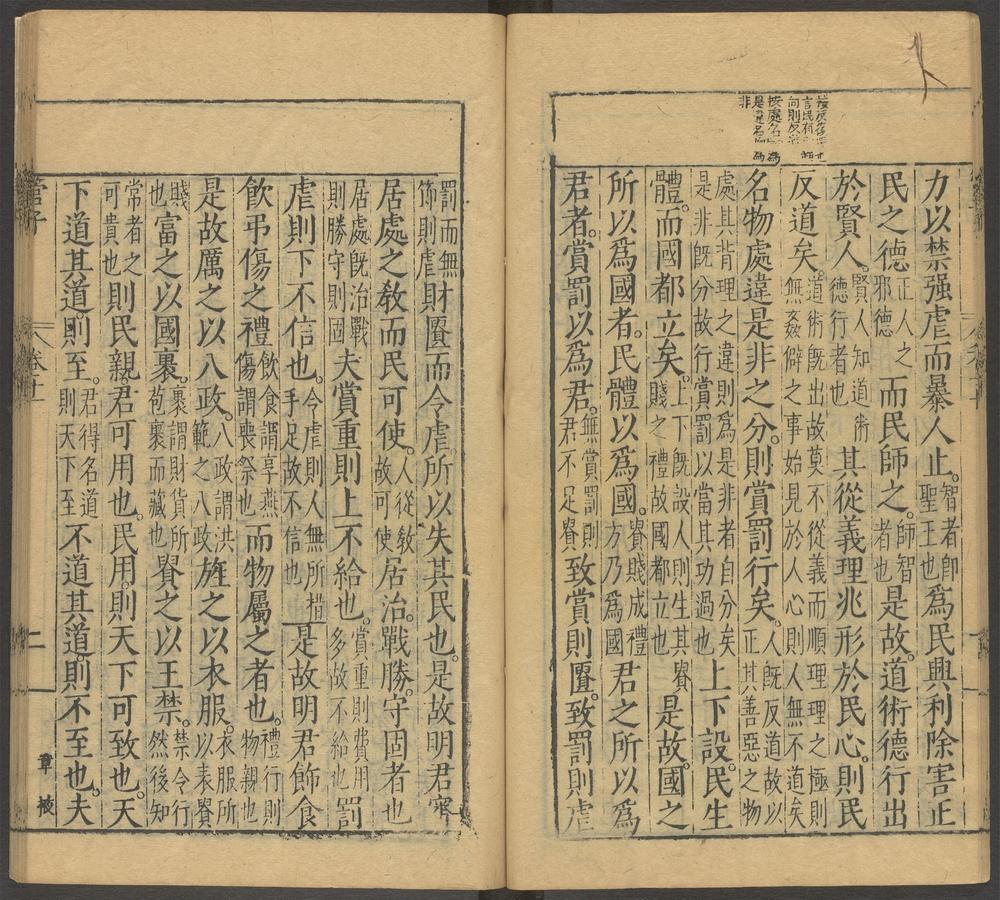 力以禁强虐而暴人止。智者卽聖王也爲民興利除害正
民之德正人之邪德而民師之。師智者也是故道術德行出
於賢人。賢人知道術德行者也其從義理兆形於民心則民
反道矣。道術旣出故莫不從義而順理理之極則無姦僻之事始見於人心則人無不道矣
名物處違是非之分。則賞罰行矣。人旣反道故以正其善惡之物
處其背理之違則爲是非者自分矣是非旣分故行賞罰以當其功過也上下設。民生
體。而國都立矣。上下旣設人則生其貴賤之禮故國都立也是故國之
所以爲國者。民體以爲國。貴賤成禮方乃爲國君之所以爲
君者。賞罰以爲君。無賞罰則君不足貴致賞則匱。致罰則虐
財匱而令虐所以失其民也。是故明君審
居處之敎而民可使。人從敎故可使居治。戰勝。守固者也
居處旣治戰則勝守則固夫賞重則上不給也。賞重則費用多故不給也罰
虐則下不信也。令虐則人無所措手足故不信也是故明君飾食
飮弔傷之禮飮食謂享燕傷謂喪祭也而物屬之者也。禮行則物親也
是故厲之以八政。八政謂洪範之八政旌之以衣服。衣服所以表貴
賤也富之以國裹。裹謂財貨所苞裹而藏也貴之以王禁。禁令行然後知
常者之可貴也則民親君可用也。民用。則天下可致也。天
下道其道。則至。君得名道則天下至不道其道。則不至也。夫
管子
卷十一
二
章掖